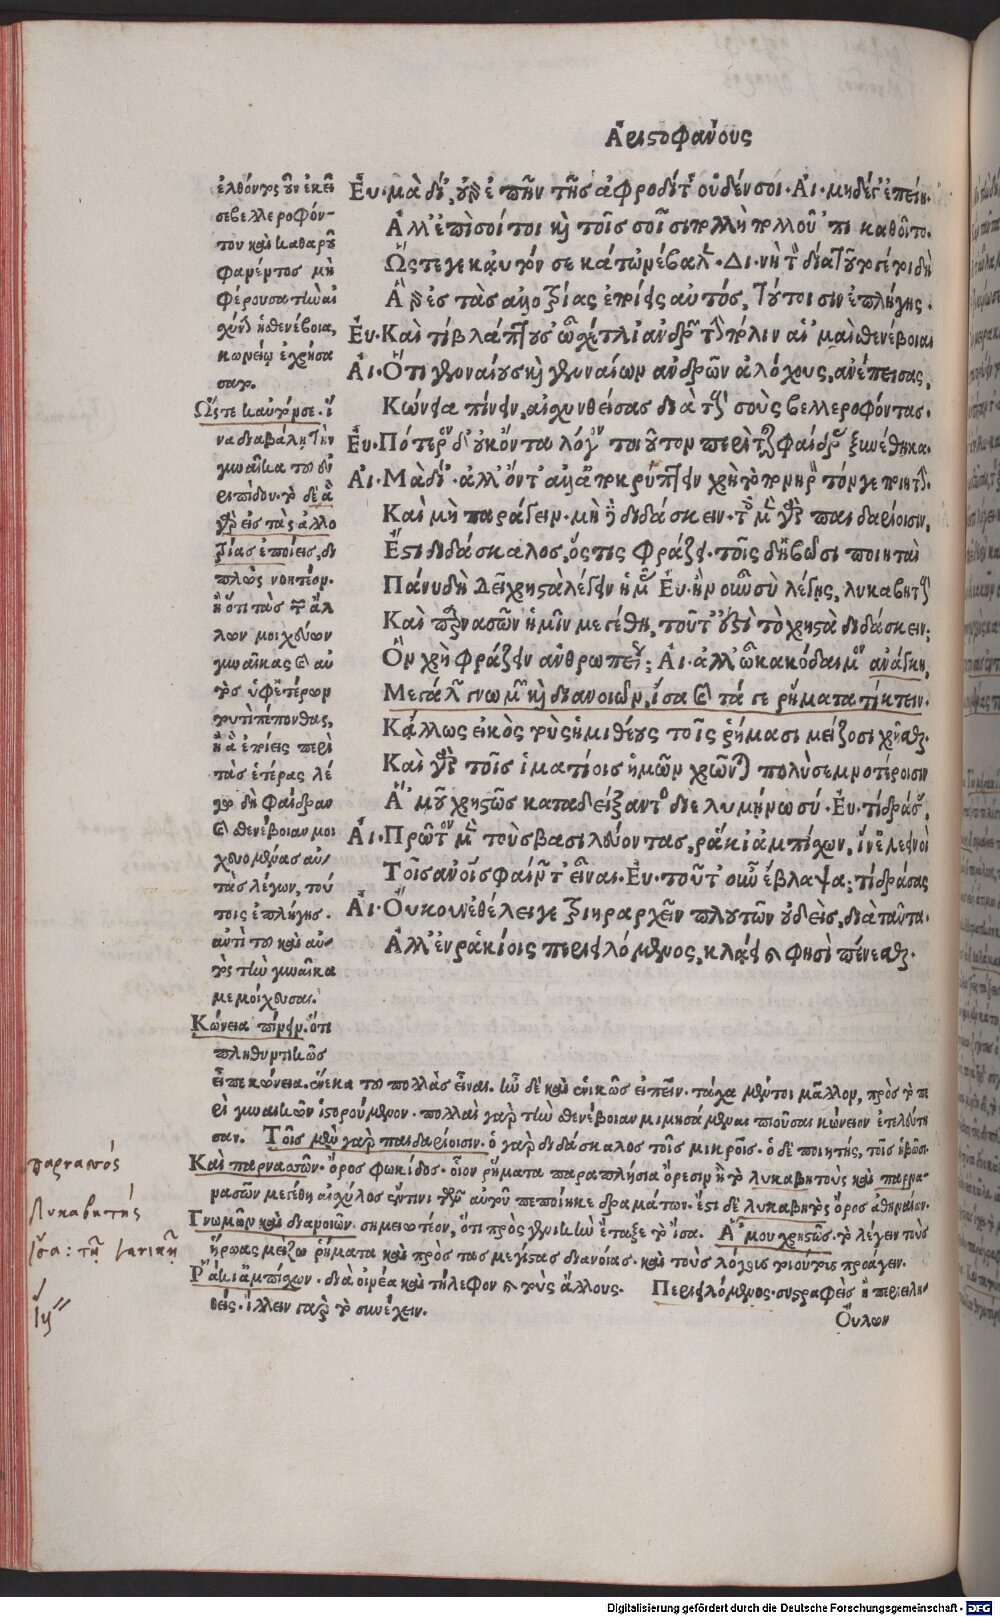 Ἀριστοφάνους
Εὐ. μὰ δί', οὐδὲ γὰρ ἦν τῆς ἀφροδίτης οὐδέν σοι. Αἰ. μηδέ γ' ἐπείη.
Ἀλλ' ἐπὶ σοί τοι καὶ τοῖς σοῖσι πολλὴ πολλοῦ 'πικαθοῖτο.
Ὥστε γε καὐτόν σε κάτω μέβαλε. Δι. νὴ τὸν δία τοῦτό γέ τοι δὴ
Ἃ γὰρ ἐς τὰς ἀλλοτρίας ἐποίεις αὐτὸς, τούτοισιν ἐπλήγης.
Εὐ. Καὶ τί βλάπτουσ' ὦ σχέτλι' ἀνδρῶν τὴν πόλιν αἱ 'μαὶ σθενέβοιαι
Αἰ. Ὅτι γενναίους καὶ γενναίων ἀνδρῶν ἀλόχους, ἀνέπεισας,
Κώνεια πίνειν, αἰσχυνθείσας διὰ τοὺς σοὺς βελλεροφόντας.
Εὐ. Πότερον δ' οὐκ ὄντα λόγον τοιοῦτον περὶ τῆς φαίδρας ξυνέθηκα.
Αἰ. Μὰ δί'. ἀλλ' ὄντ' ἀλλ' ἀποκρύπτειν χρὴ τὸ πονηρὸν τόν γε ποιητὴν.
Καὶ μὴ παράγειν. μὴ δὲ διδάσκειν. τοῖς μὲν γὰρ παιδαρίοισιν,
Ἔστι διδάσκαλος, ὅστις φράζει. τοῖς δ' ἡβῶσι ποιηταὶ
Πάνυ δὴ δεῖ χρηστὰ λέγειν ἡμᾶς Εὐ. ἢν οὖν σὺ λέγῃς, λυκαβηττοὺς
Καὶ παρνασῶν ἡμῖν μεγέθη, τοῦτ' ἐστὶ τὸ χρηστὰ διδάσκειν;
Ὃν χρὴ φράζειν ἀνθρωπείως; Αἰ. ἀλλ' ὦ κακόδαιμον ἀνάγκη,
Μεγάλων γνωμῶν καὶ διανοιῶν, ἴσα καὶ τά γε ῥήματα τίκτειν.
Κἄλλως εἰκὸς τοὺς ἡμιθέους τοῖς ῥήμασι μείζοσι χρῆσθαι.
Καὶ γὰρ τοῖς ἱματίοις ἡμῶν χρῶνται πολὺ σεμνοτέροισιν
Ἃ 'μοῦ χρηστῶς καταδείξαντος διελυμήνω σύ. Εὐ. τί δράσας,
Αἰ. Πρῶτον μὲν τοὺς βασιλεύοντας, ῥάκι' ἀμπίσχων, ἵν' ἐλεεινοὶ
Τοῖς ἀνθρώποις φαίνοιντ' εἶναι. Εὐ. τοῦτ' οὖν ἔβλαψα; τί δράσας
Αἰ. Οὔκουν ἐθέλει γε τριηραρχεῖν πλουτῶν οὐδεὶς, διὰ ταῦτα.
Ἀλλ' ἐν ῥακίοις περιειλόμενος, κλάει καὶ φησὶ πένεσθαι.
ἐλθόντος οὖν ἐκεῖ
σε βελλεροφόν-
του καὶ καθαροῦ
φανέντος μὴ
φέρουσα τὴν αἰ
σχύνην ἡ σθενέβοια,
κωνείῳ ἐχρήσα
σατο.
Ὥστε καὐτόν σε. ἵ
να διαβάλῃ τὴν
γυναῖκα τοῦ εὐ
ριπίδου. τὸ δὲ ἃ
γὰρ εἰς τὰς ἀλλο
τρίας ἐποίεις, δι
πλῶς νοητέον.
ἢ ὅτι τὰς τῶν ἄλ
λων μοιχεύων
γυναῖκας καὶ αὐ
τὸς ὑφ' ἑτέρων
τοῦτο πέπονθας,
ἢ ἃ ἐποίεις περὶ
τὰς ἑτέρας λέ
γω δὴ φαίδραν
καὶ σθενέβοιαν μοι
χευομένας αὐ-
τὰς λέγων, τού
τοις ἐπλήγης.
ἀντὶ τοῦ καὶ αὐ-
τὸς τὴν γυναῖκα
μεμοίχευσαι.
Κώνεια πίνειν. ὅτι
πληθυντικῶς
εἶπε κώνεια. ἕνεκα τοῦ πολλὰς εἶναι. ἦν δὲ καὶ ἑνικῶς εἰπεῖν. τάχα μέντοι μᾶλλον, πρὸς τὸ πε
ρὶ γυναικῶν ἱστορούμενον. πολλαὶ γὰρ τὴν σθενέβοιαν μιμησάμεναι πιοῦσαι κώνειον ἐτελεύτη
σαν. Τοῖς μὲν γὰρ παιδαρίοισιν. ὁ γὰρ διδάσκαλος τοῖς μικροῖς. ὁ δὲ ποιητής, τοῖς ἡβῶσι.
Καὶ παρνασῶν. ὄρος φωκίδος. οἷον ῥήματα παραπλήσια ὄρεσιν ἢ τὸ λυκαβητοὺς καὶ παρνα-
νασῶν μεγέθη αἰσχύλος ἔν τινι τῶν αὐτοῦ πεποίηκε δραμάτων. ἔστι δὲ λυκαβητὸς ὄρος ἀθηναίων.
Γνωμῶν καὶ διανοιῶν. σημειωτέον, ὅτι πρὸς γενικὴν ἔταξε τὸ ἴσα. Ἅ 'μου χρηστῶς. τὸ λέγειν τοὺς
ἥρωας μείζω ῥήματα καὶ πρὸς τὰς μεγίστας διανοίας. καὶ τοὺς λόγους τοιούτους προάγειν.
Ῥάκι' ἀμπίσχων. διὰ οἰνέα καὶ τήλεφον καὶ τοὺς ἄλλους. Περιειλόμενος. συστραφεὶς ἢ περιειλη-
θείς. ἴλλειν γὰρ τὸ συνέχειν.
Οὔλων
παρνασός
Λυκαβητής
ἴσα: τῇ γενικῇ
Digitalisierung gefördert durch die Deutsche Forschungsgemeinschaft - DFG